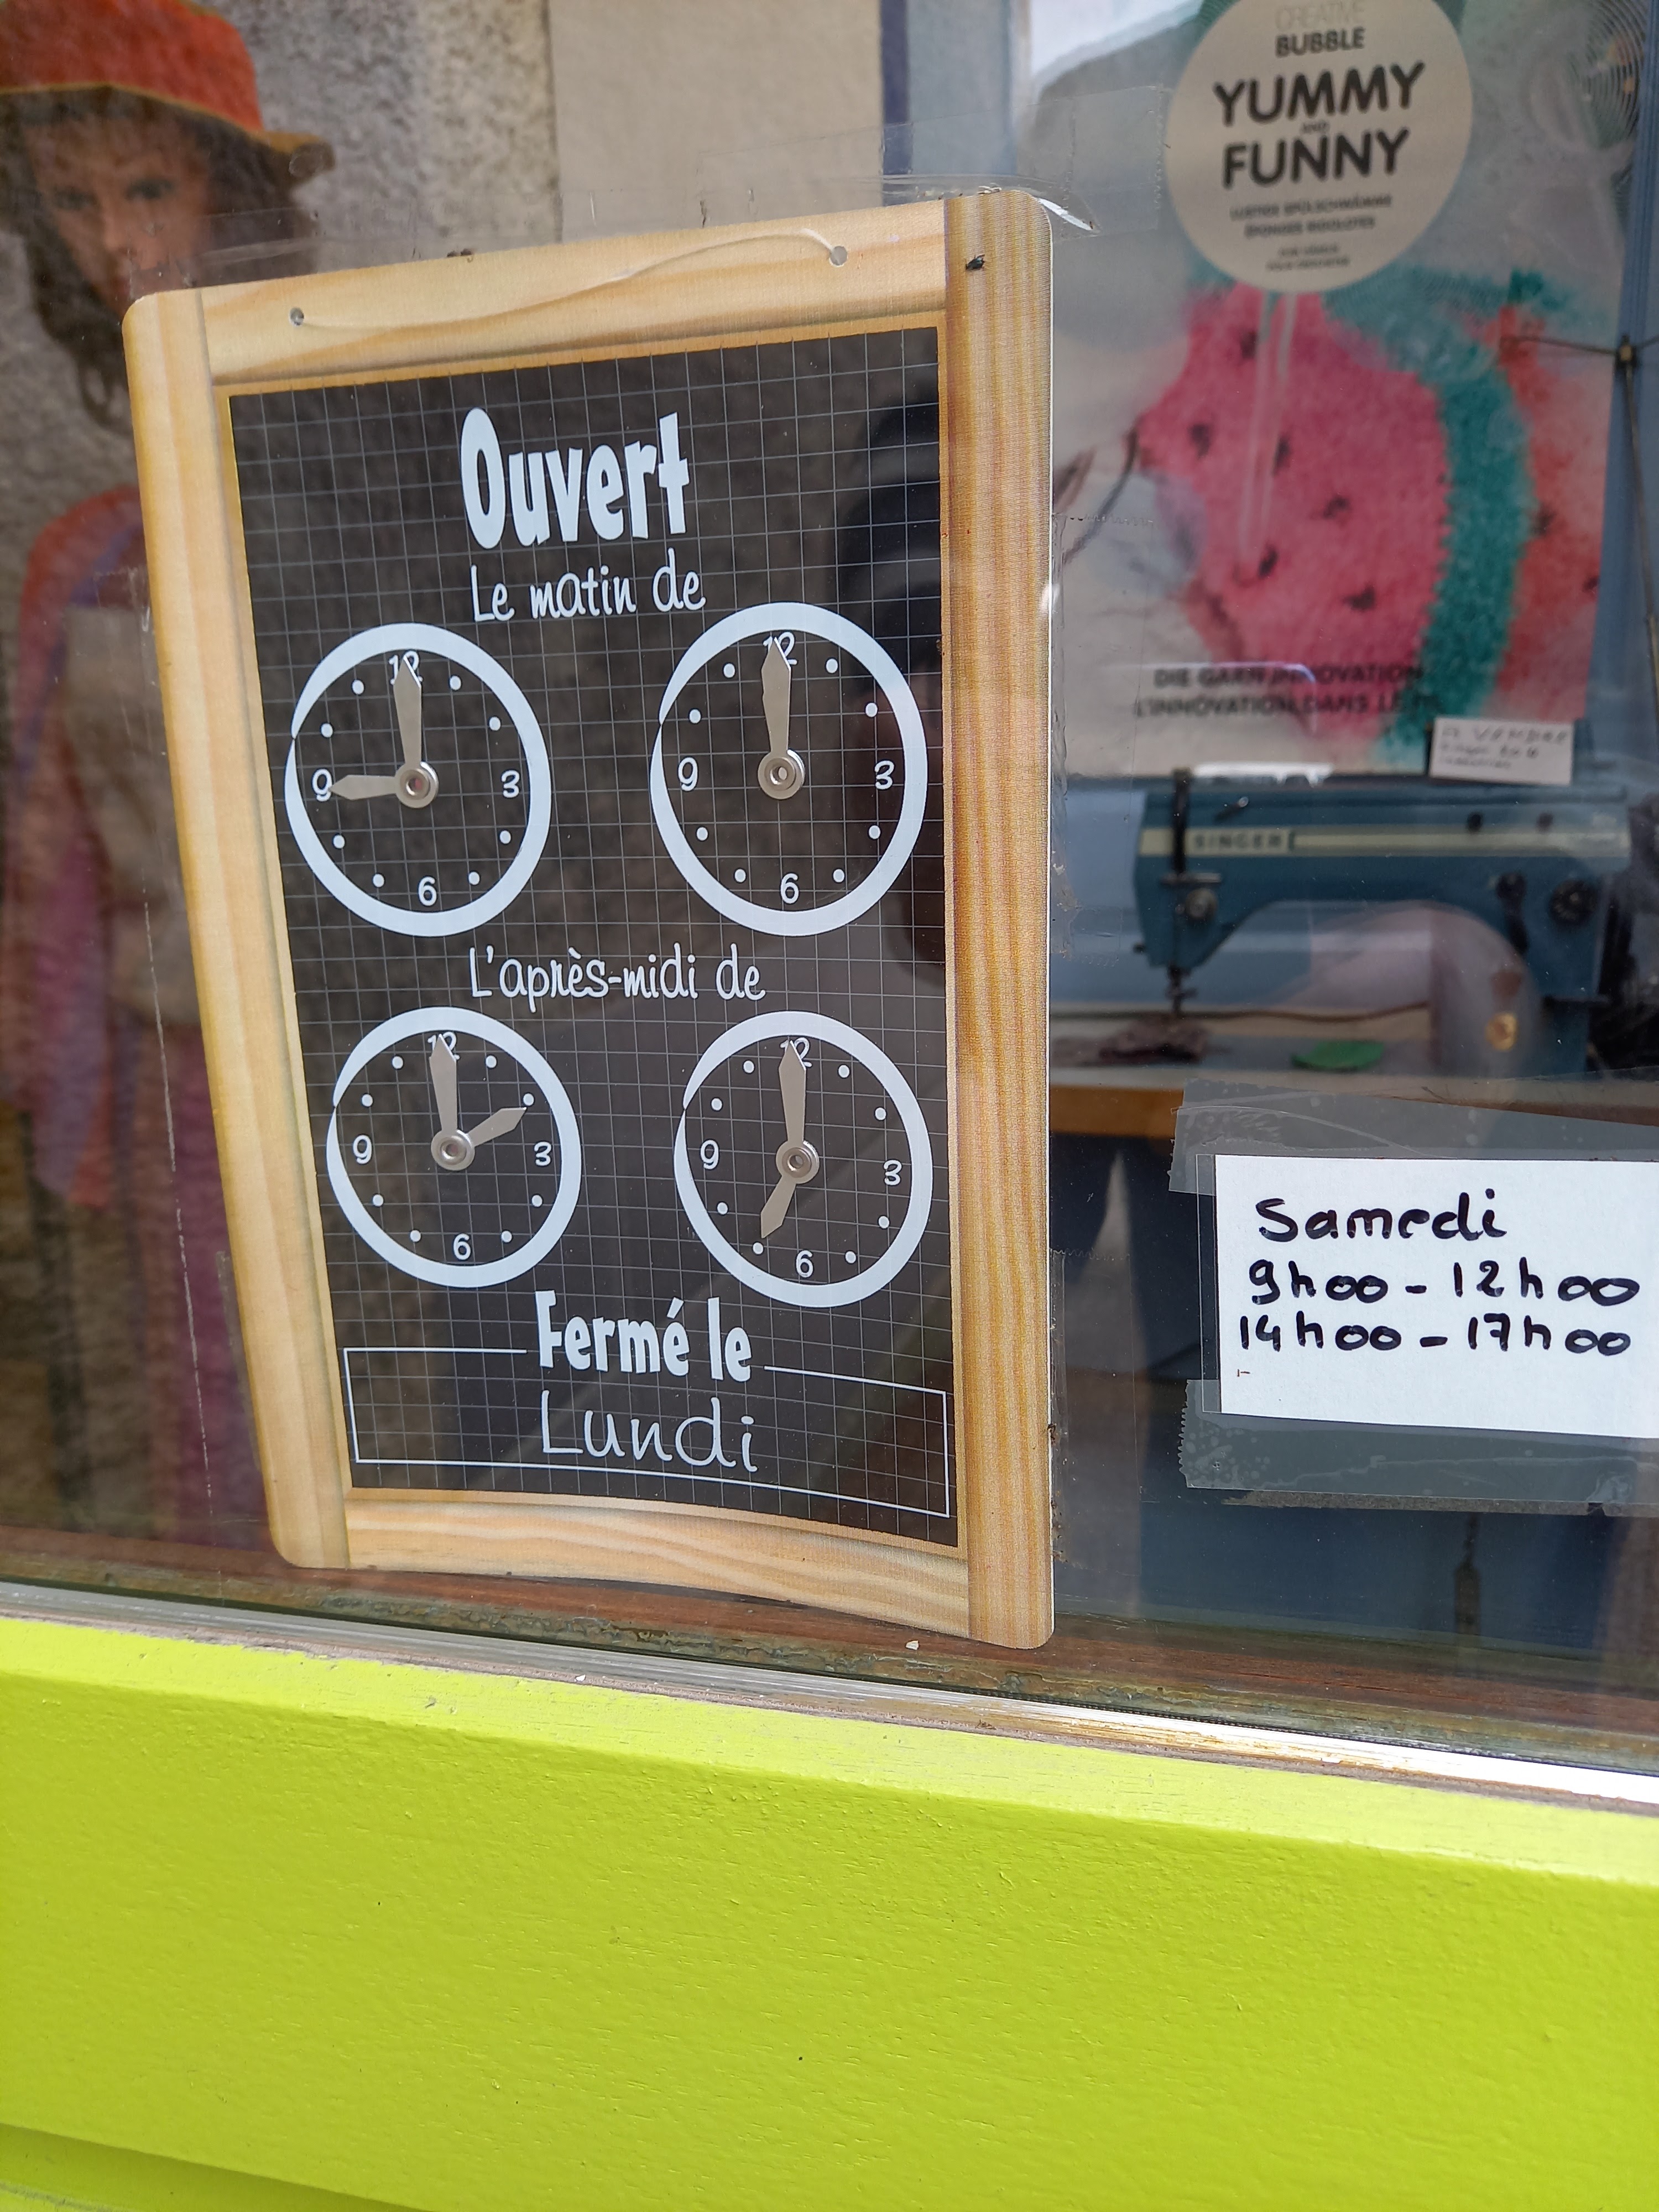 CREATIVE
BUBBLE
YUMMY
AND
FUNNY
LUSTIGE SPÜLSCHWÄMME
ÉPONGES RIGOLOTES
Ouvert
Le matin de
12
9 3
6
12
9 3
6
L'après-midi de
12
9 3
6
12
9 3
6
Fermé le
Lundi
DIE GARN INNOVATION
L'INNOVATION DANS LE
A VENDRE
SINGER
Samedi
9h00 - 12h00
14h00 - 17h00